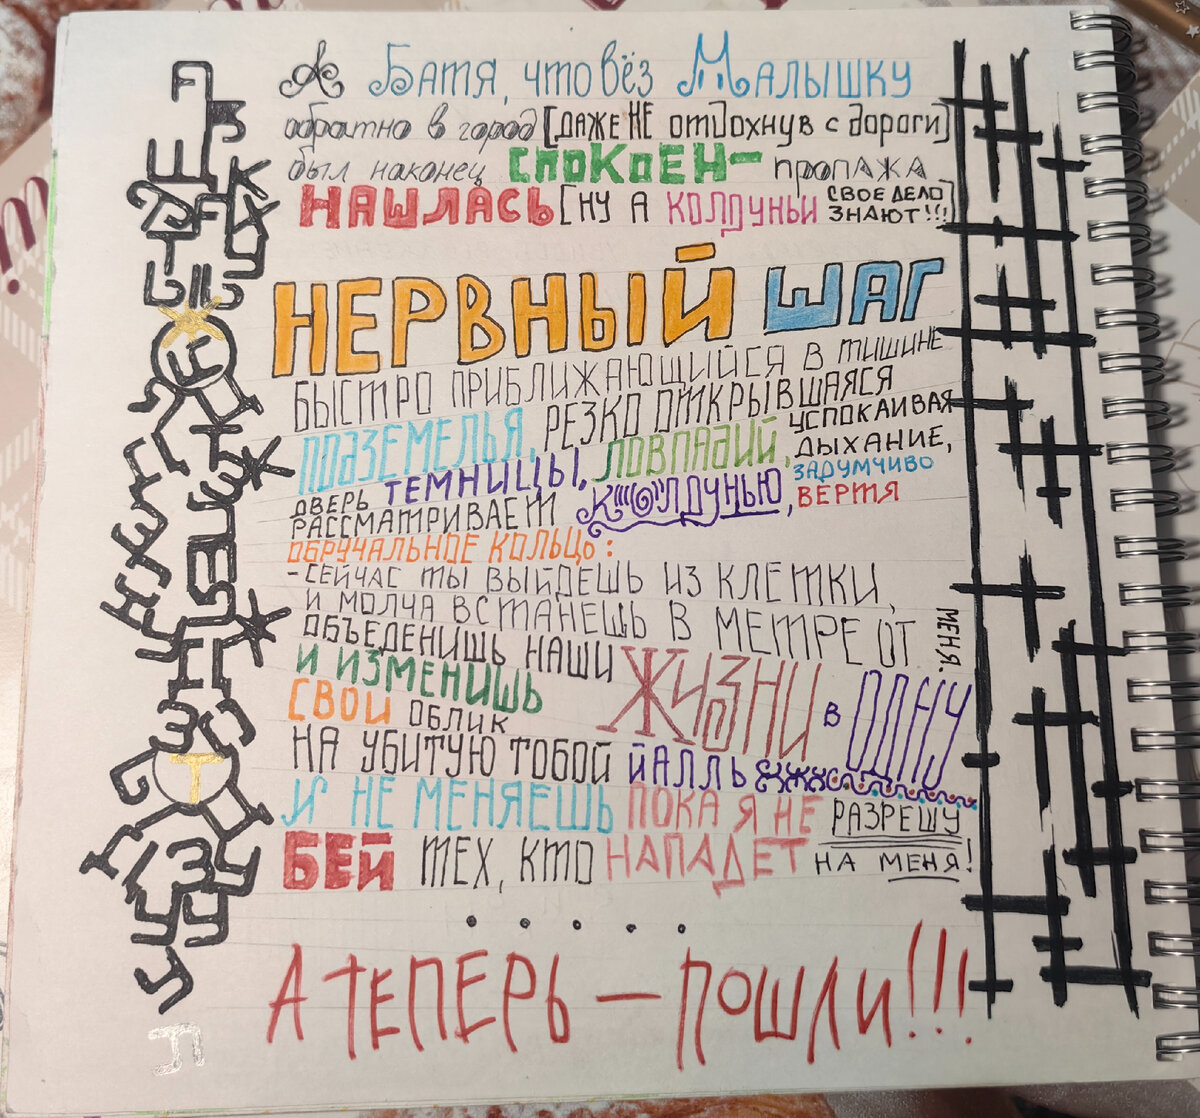 А Батя, что вёз Малышку
обратно в город [даже не отдохнув с дороги]
был наконец спокоен — пропажа
нашлась [ну а колдуньи своё дело
знают!!!]
НЕРВНЫЙ ШАГ
БЫСТРО ПРИБЛИЖАЮЩИЙСЯ В ТИШИНЕ
ПОДЗЕМЕЛЬЯ, РЕЗКО ОТКРЫВШАЯСЯ
ДВЕРЬ ТЕМНИЦЫ, ЛОВПАДИЙ, УСПОКАИВАЯ
ДЫХАНИЕ,
РАССМАТРИВАЕТ КОЛДУНЬЮ, ЗАДУМЧИВО
ВЕРТЯ
ОБРУЧАЛЬНОЕ КОЛЬЦО:
- СЕЙЧАС ТЫ ВЫЙДЕШЬ ИЗ КЛЕТКИ,
И МОЛЧА ВСТАНЕШЬ В МЕТРЕ ОТ МЕНЯ.
ОБЪЕДЕНИШЬ НАШИ ЖИЗНИ В ОДНУ
И ИЗМЕНИШЬ
СВОЙ ОБЛИК
НА УБИТУЮ ТОБОЙ ЙАЛЛЬ
И НЕ МЕНЯЕШЬ ПОКА Я НЕ РАЗРЕШУ
БЕЙ ТЕХ, КТО НАПАДЕТ НА МЕНЯ!
.....
А ТЕПЕРЬ — ПОШЛИ!!!